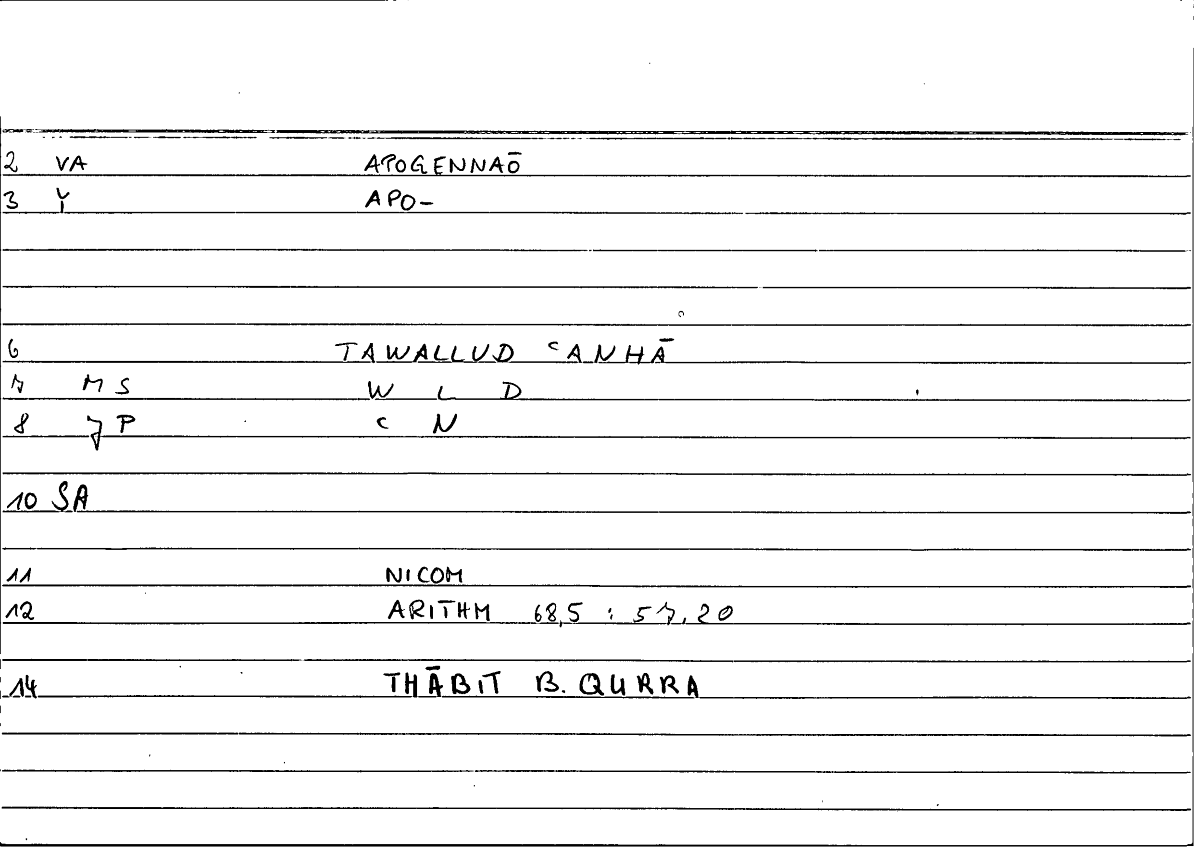 2 VA APOGENNAŌ
3 Y APO-
6 TAWALLUD ʿANHĀ
7 MS W L D
8 JP ʿ N
10 SA
11 NICOM
12 ARITHM 68,5 : 57,20
14 THĀBIT B. QURRA